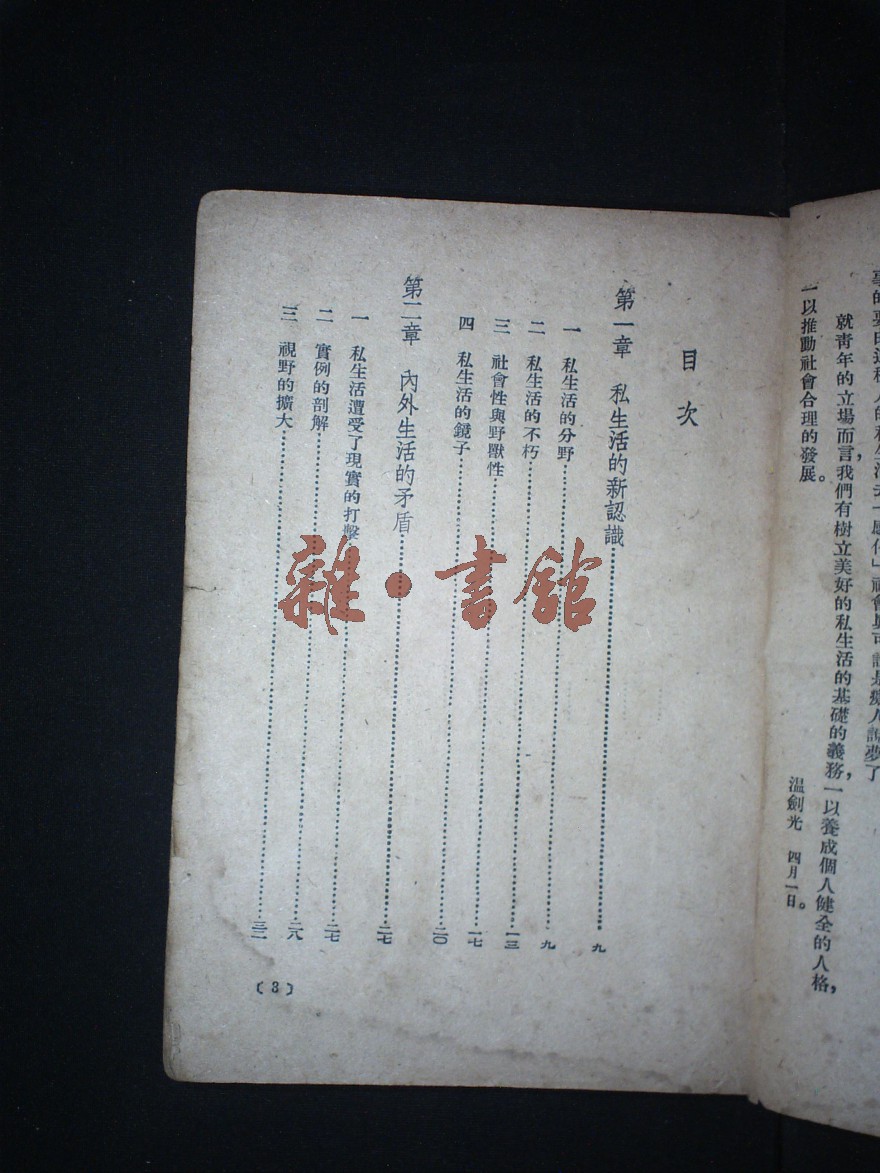 就青年的立場而言，我們有樹立美好的私生活的基礎的義務，一以養成個人健全的人格，
一以推動社會合理的發展。
溫劍光　四月一日。
目次
第一章　私生活的新認識……九
一　私生活的分野……九
二　私生活的不朽……一三
三　社會性與野獸性……一七
四　私生活的鏡子……二〇
第二章　內外生活的矛盾……二七
一　私生活遭受了現實的打擊……二七
二　實例的剖解……二八
三　視野的擴大……三二
〔3〕
雜·書館